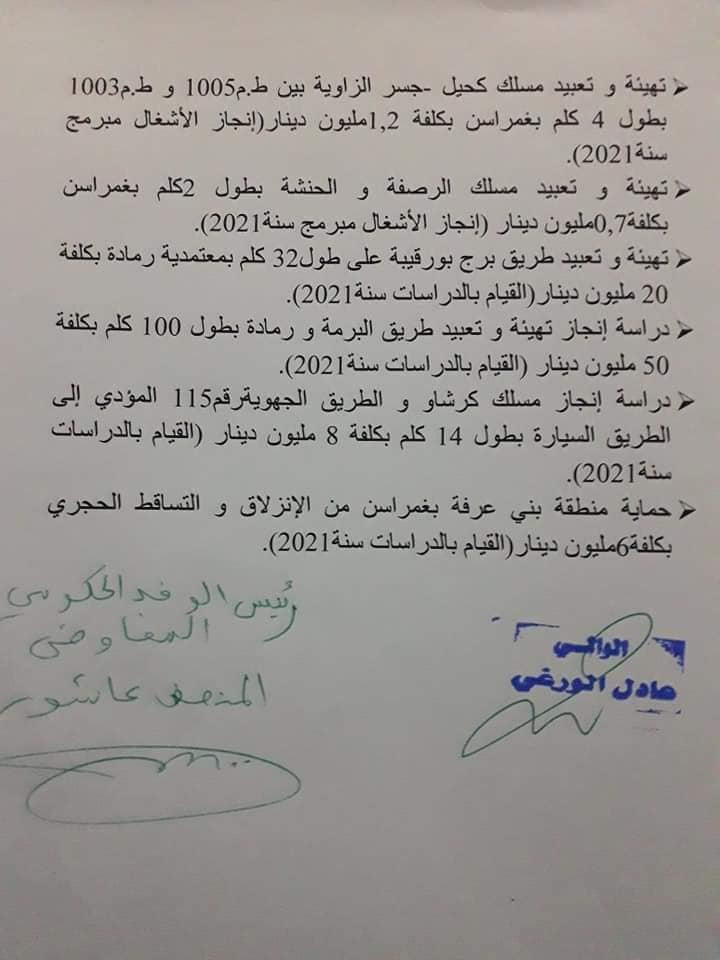 ➢ تهيئة و تعبيد مسلك كحيل -جسر الزاوية بين ط.م1005 و ط.م1003
بطول 4 كلم بغمراسن بكلفة 1,2مليون دينار(إنجاز الأشغال مبرمج
سنة2021).
➢ تهيئة و تعبيد مسلك الرصفة و الحنشة بطول 2كلم بغمراسن
بكلفة0,7مليون دينار (إنجاز الأشغال مبرمج سنة2021).
➢ تهيئة و تعبيد طريق برج بورقيبة على طول32 كلم بمعتمدية رمادة بكلفة
20 مليون دينار(القيام بالدراسات سنة2021).
➢ دراسة إنجاز تهيئة و تعبيد طريق البرمة و رمادة بطول 100 كلم بكلفة
50 مليون دينار (القيام بالدراسات سنة2021).
➢ دراسة إنجاز مسلك كرشاو و الطريق الجهويةرقم115 المؤدي إلى
الطريق السيارة بطول 14 كلم بكلفة 8 مليون دينار (القيام بالدراسات
سنة2021).
➢ حماية منطقة بني عرفة بغمراسن من الإنزلاق و التساقط الحجري
بكلفة6مليون دينار(القيام بالدراسات سنة2021).
الوالي
عادل الورغي
رئيس الوفد الحكومي
المفاوض
المنصف عاشور